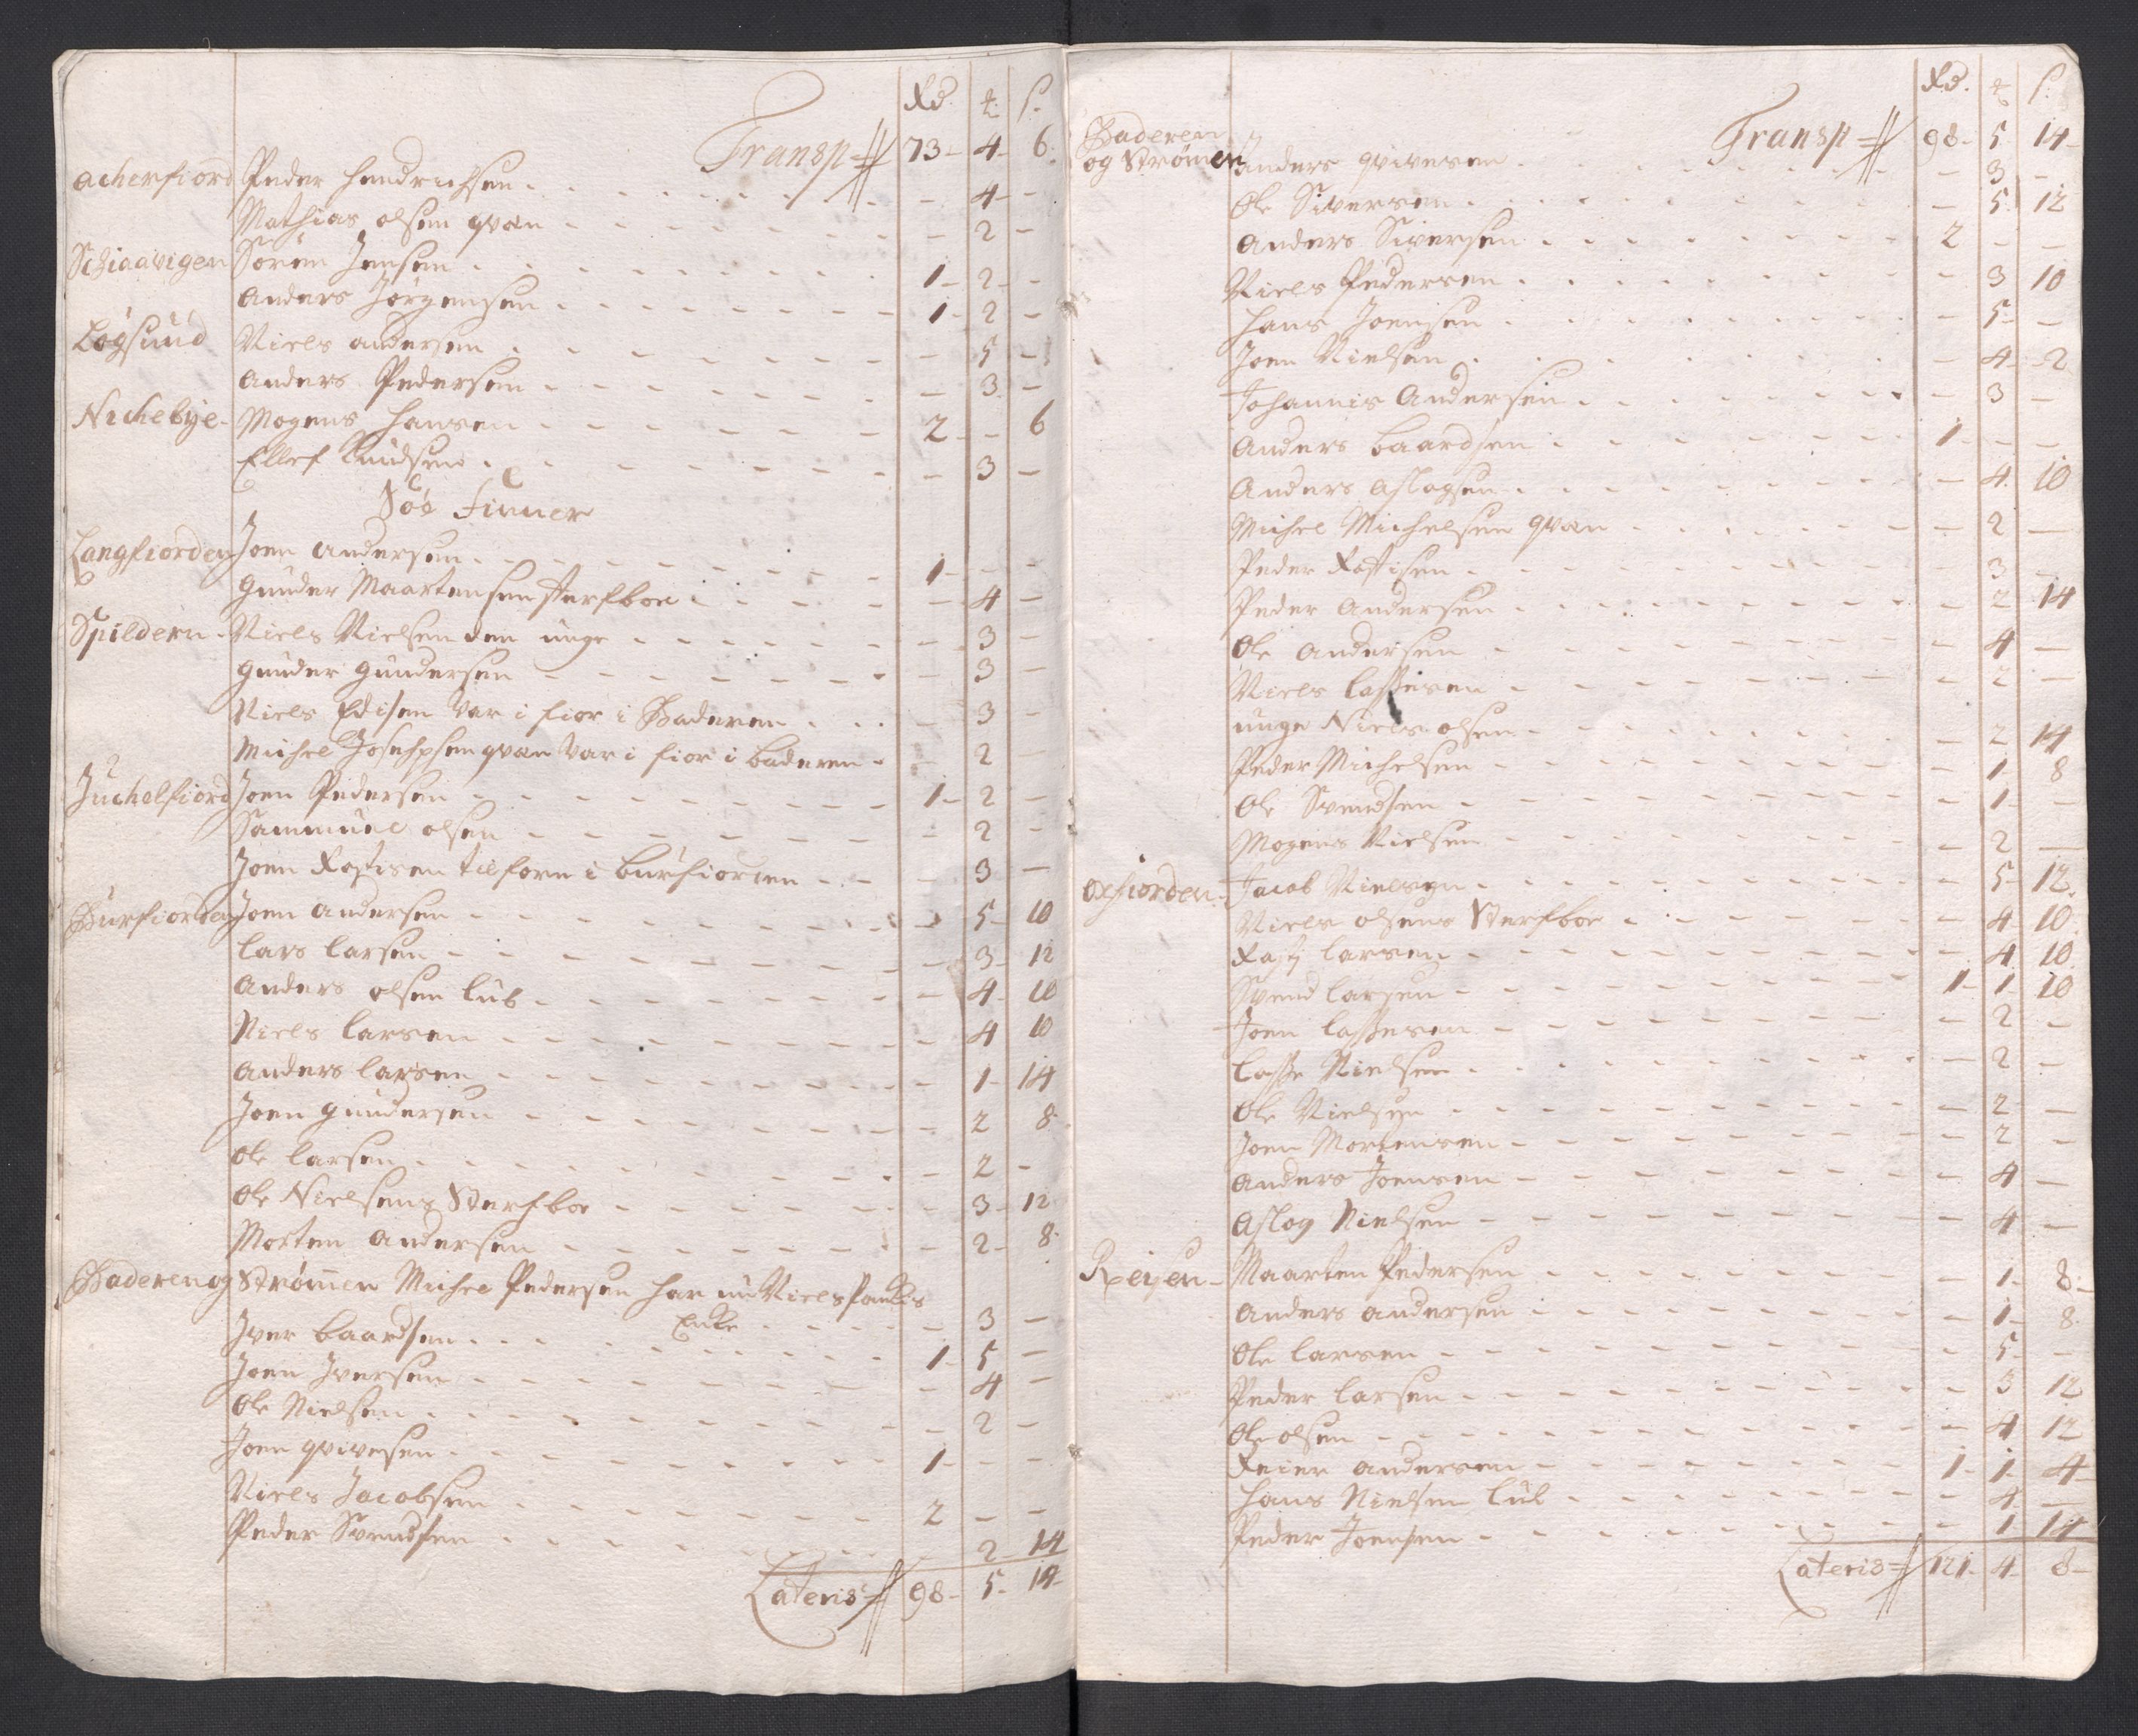 Rd. ₰. s.
Transp 73 - 4 - 6
Acherfiord Peder Hendrichsen - 4 -
Mathias olsen qvæn - 2 -
Schiaavigen Søren Jensen 1 - 2 -
Anders Jørgensen 1 - 2 -
Løgsund Niels andersen - 5 -
Anders Pedersen - 3 -
Nichebye - Mogens Hansen 2 - - 6
Ellef Knudsen - 3 -
Søe Finner
Langfiorden Joen Andersen 1 - - -
Gunder Maartensen sterfboe - 4 -
Spildern - Niels Nielsen den unge - 3 -
Gunder Gundersen - 3 -
Niels Edisen var i fior i Baderen - 3 -
Michel Josephsen qvæn var i fior i baderen - 2 -
Juchelfiord Joen Pedersen 1 - 2 -
Sammuel olsen - 2 -
Joen Rastisen tilforn i burfiorden - 3 -
Burfiorden Joen Andersen - 5 - 10
Lars Larsen - 3 - 12
Anders olsen Lub - 4 - 10
Niels Larsen - 4 10
Anders Larsen - 1 - 14
Joen Gundersen - 2 8
Ole Larsen - 2 -
Ole Nielsens Sterfboe - 3 - 12
Morten Andersen - 2 - 8
Baderen og Strømen Michel Pedersen har nu Niels
Encke - 3 -
Iver Baardsen 1 - 5 -
Joen Iversen - 4 -
Ole Nielsen - 2 -
Joen qvivesen 1 - - -
Niels Jacobsen 2 - -
Peder Svendsen - 2 - 14
Lateris 98 - 5 - 14
Rd. ₰ s.
Baderen Transp 98 - 5 14
og Strømen Anders qvivesen - 3 -
Ole Siversen - 5 12
Anders Siversen 2 - -
Niels Pedersen - 3 10
Hans Joensen - 5 -
Joen Nielsen - 4 - 2
Johannis Andersen - 3 -
Anders Baardsen 1 - - -
Anders Aslagsen - 4 10
Michel Michelsen qvæn - 2 -
Peder Rastisen - 3 -
Peder Andersen - 2 14
Ole Andersen - 4 -
Niels Lassesen - 2 -
unge Niels olsen - 2 14
Peder Michelsen - 1 8
Ole Svendsen - 1 -
Mogens Nielsen - 2 -
Oxfiorden - Jacob Nielsen - 5 - 12
Niels olsens Sterfboe - 4 10
Rasti Larsen - 4 10
Svend Larsen 1 - 1 - 10
Joen Lassesen - 2 -
Lasse Nielsen - 2 -
Ole Nielsen - 2 -
Joen Mortensen - 2 -
Anders Joensen - 4 -
Aslag Nielsen - 4 -
Reisen - Maarten Pedersen - 1 - 8 -
Anders Andersen - 1 - 8
Ole Larsen - 5 -
Peder Larsen - 3 12
Ole olsen - 4 12
Reier Andersen 1 - 1 - 4
Hans Nielsen Lub - 4 -
Peder Joensen - 1 14
Lateris 121 - 4 - 8 -